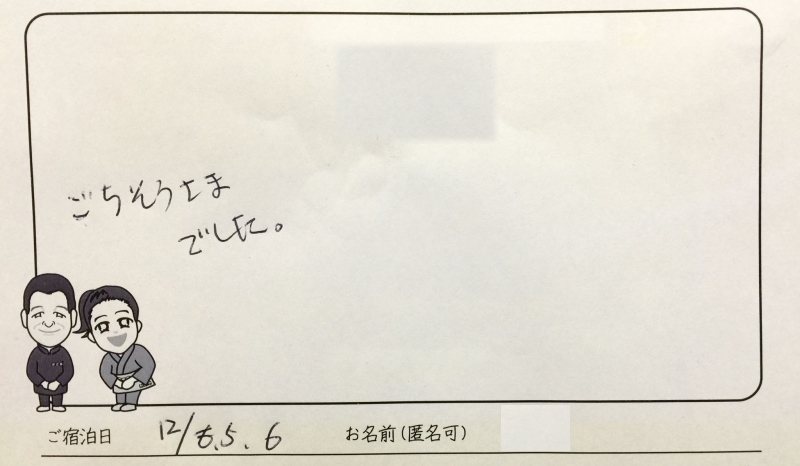 ごちそうさま
でした。
ご宿泊日 12/6.5.6 お名前(匿名可)